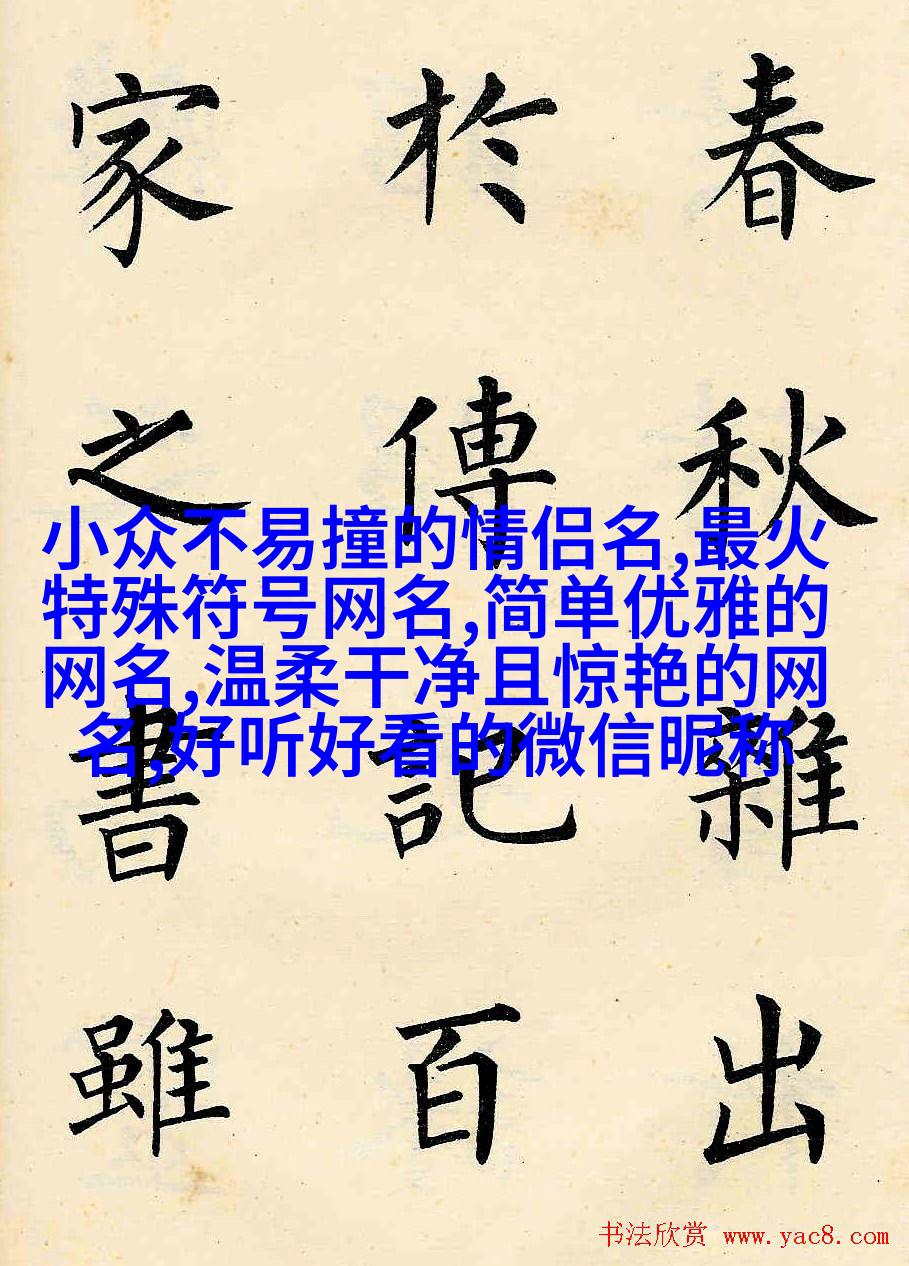 春秋雜出
於傳記百
家之書雖
小众不易撞的情侣名,最火
特殊符号网名,简单优雅的
网名,温柔干净且惊艳的网
名,好听好看的微信昵称
书法欣赏 www.yac8.com